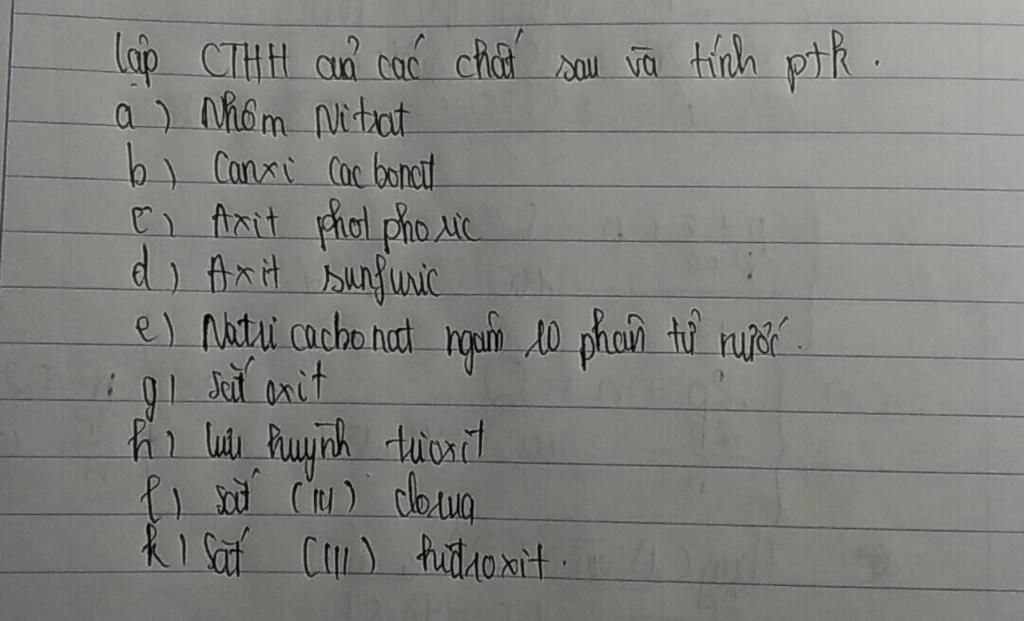 lập CTHH của các chất sau và tính ptk.
a) Nhôm Nitrat
b) Canxi cacbonat
c) Axit photphoric
d) Axit sunfuric
e) Natri cacbonat ngậm 10 phân tử nước.
g) sắt oxit
h) lưu huỳnh trioxit
f) sắt (III) clorua
k) Sắt (III) hiđroxit.